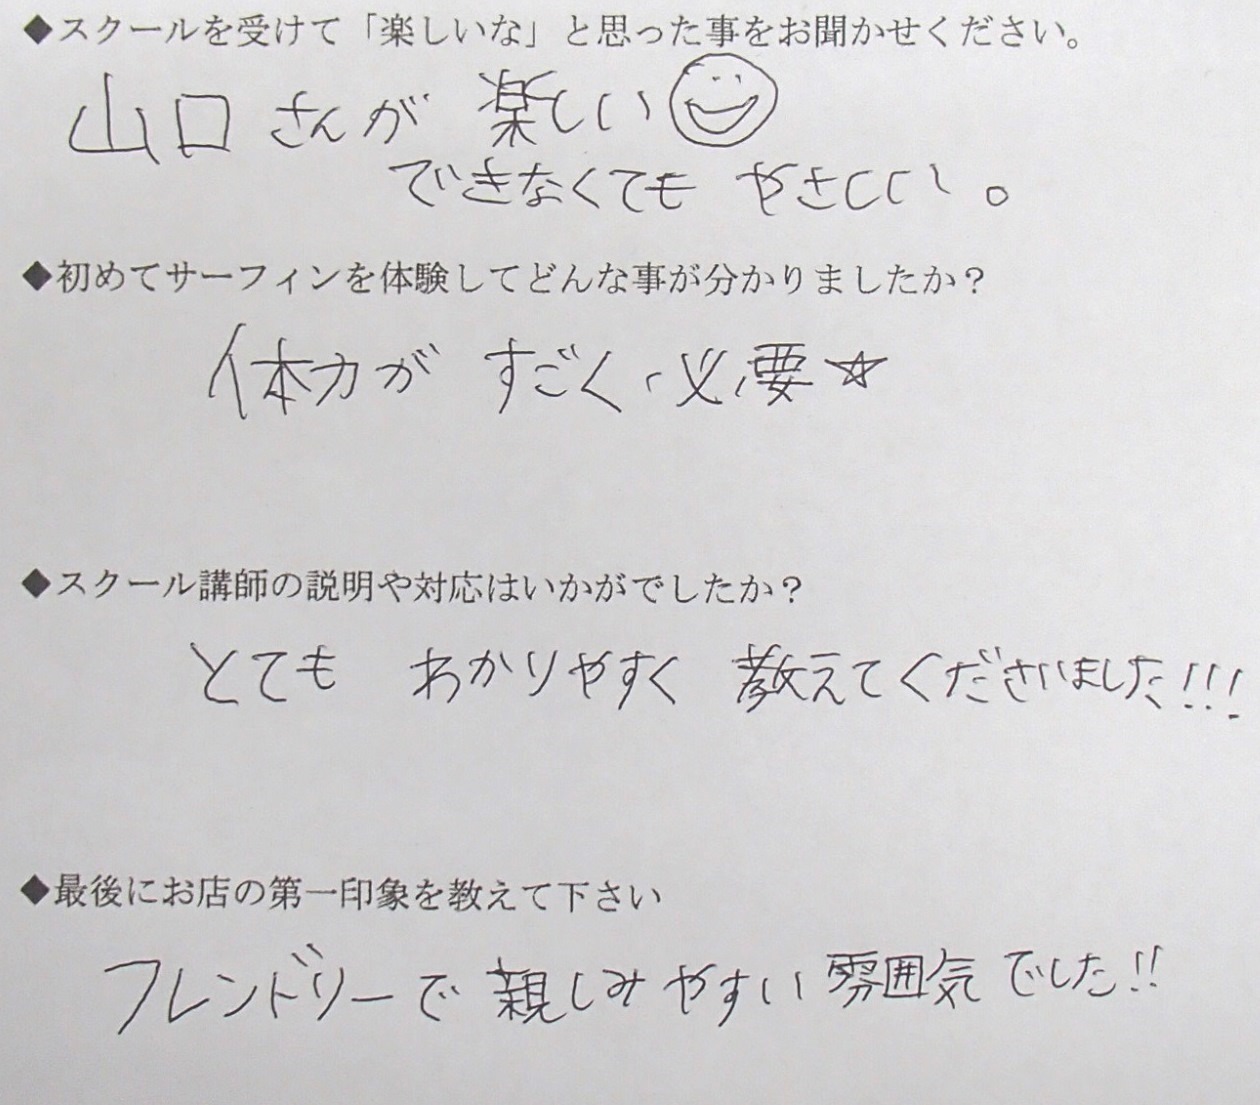 ◆スクールを受けて「楽しいな」と思った事をお聞かせください。
山口さんが 楽しい
できなくても やさしい。
◆初めてサーフィンを体験してどんな事が分かりましたか？
体力が すごく必要☆
◆スクール講師の説明や対応はいかがでしたか？
とても わかりやすく 教えてくださいました!!!
◆最後にお店の第一印象を教えて下さい
フレンドリーで 親しみやすい 雰囲気でした!!